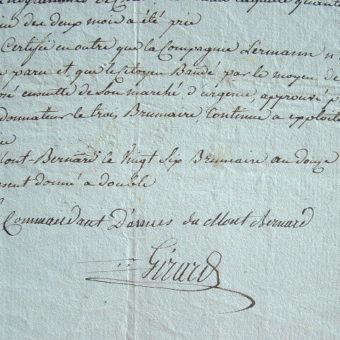 quant
des deux mois a été pris
Certifie en outre que la Compagnie Lermann n'
paru et que le Citoyen Baudé par le moyen de
ensuitte de son marché d'urgence approuvé p
donnateur le trois Brumaire Continue a exploite
Mont-Bernard le Vingt Six Brumaire an douze
sent donné a double
Commandant D'armes du Mont Bernard
Girard